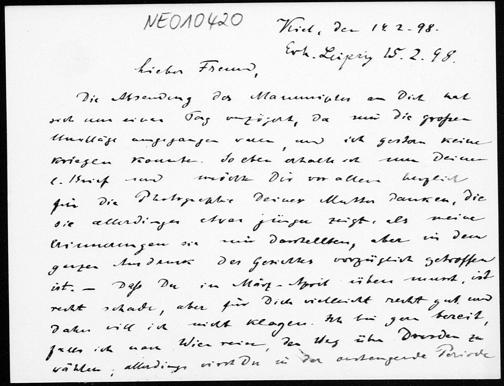 NEO10420
Kiel, den 14.2.98.
Erh. Leipzig 15.2.98.
Lieber Freund,
Die Absendung des Manuskriptes an Dich hat
sich um einen Tag verzögert, da mir die großen
Umschläge ausgegangen waren, und ich gestern keine
kriegen konnte. Soeben erhalte ich nun Deinen
l. Brief und möchte Dir vor allem herzlich
für die Photographie Deiner Mutter danken, die
sie allerdings etwas jünger zeigt, als meine
Erinnerungen sie mir darstellten, aber in dem
ganzen Ausdruck des Gesichtes vorzüglich getroffen
ist. – Daß Du im März-April übers musst, ist
recht schade, aber für Dich vielleicht recht gut, und
daher will ich nicht klagen. Ich bin gern bereit,
falls ich nach Wien reise, den Weg über Dresden zu
wählen; allerdings wirst Du in der Periode